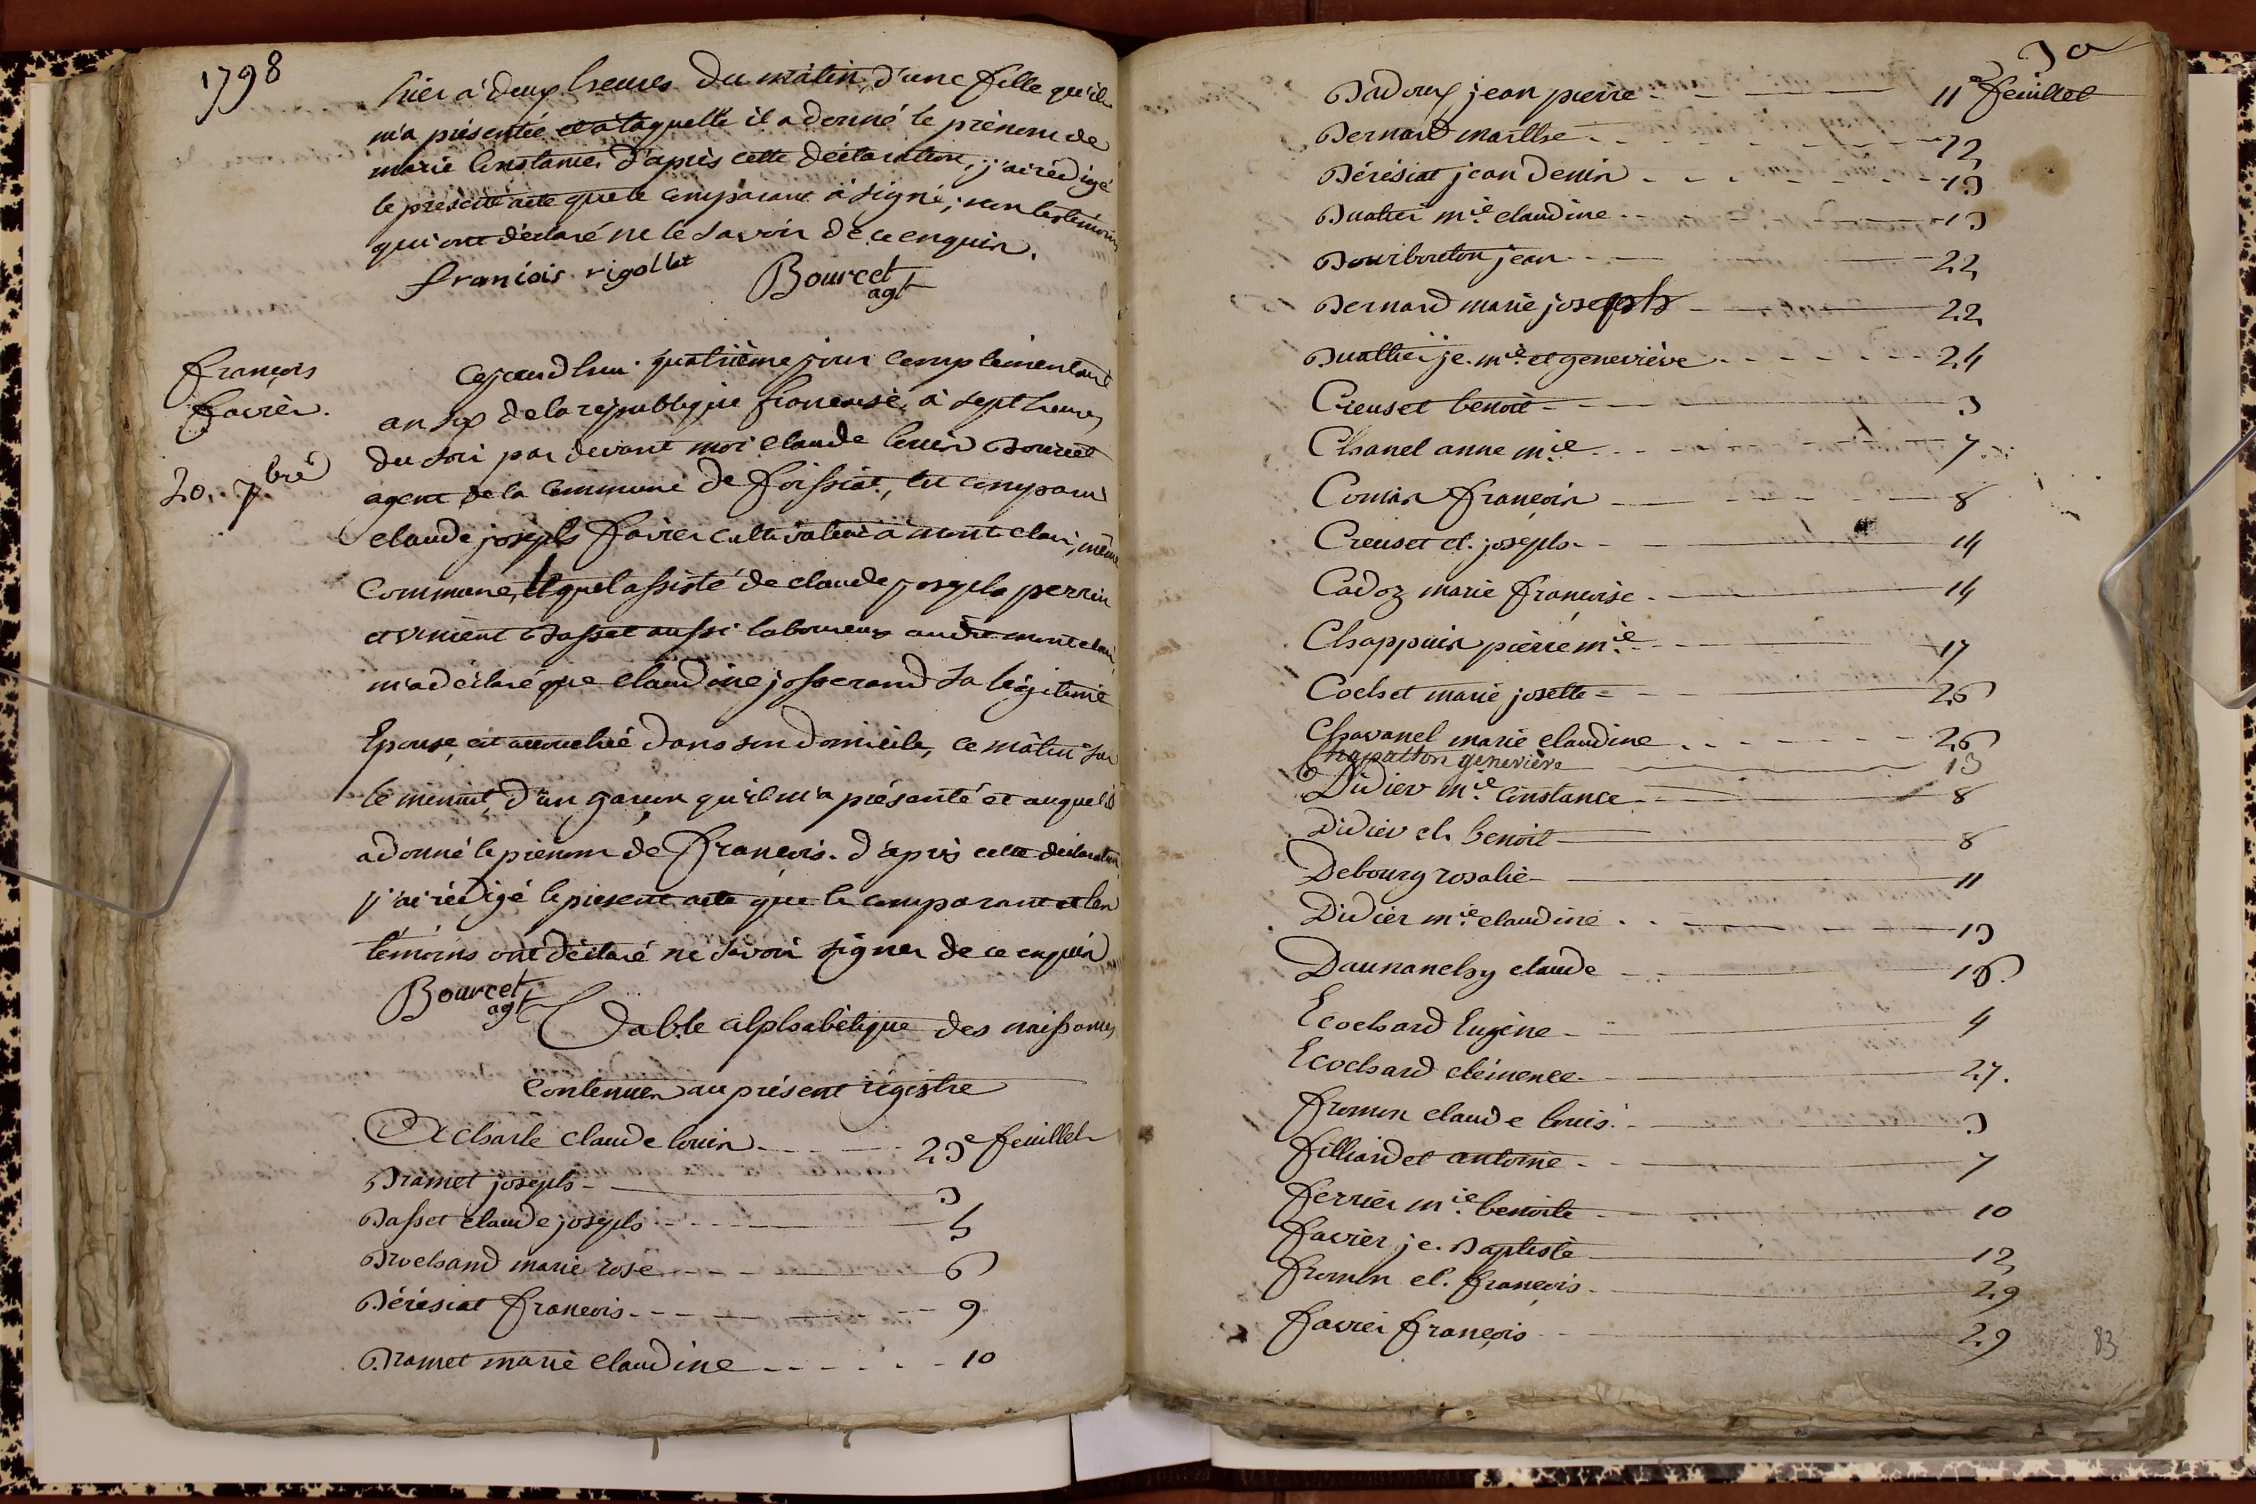 1798
hier à deux heures du matin, d'une fille qu'il
m'a présentée et à laquelle il a donné le prénom de
marie Constance, d'après cette déclaration, j'ai rédigé
le présent acte que le comparant à signé; non les témoins
qui ont déclaré ne le savoir de ce enquis.
francois rigollet Bourcet
agt
françois
favier.
20. 7bre
Cejourd'hui quatrième jour complémentaire
an six de la république françaisé, à sept heures
du soir par devant moi Claude louis Bourcet
agent de la Commune de foissiat, est comparu
claude joseph favier cultivateur à montclair, même
Commune, lequel assisté de claude joseph perrin
et vincent Basset aussi laboureurs audit montclair,
m'a déclaré que claudine josserand sa légitime
Epouse, est accouchée dans son domicile, ce mâtin sur
le minuit, d'un garçon qu'il m'a présenté et auquel il
a donné le prénom de François. d'après cette déclaration,
j'ai rédigé le présent acte que le comparant et les
témoins ont déclaré ne savoir signer de ce enquis
Bourcet
agt
Table alphabétique des naissances
Contenues au présent régistre
Acharle claude louis 23e feuillet
Bramet joseph 3
Basset claude joseph 5
Brochand marie rose 6
Bérésiat françois 9
Bramet marie claudine 10
30
Badoux jean pierre 11e feuillet
Bernard marthe 12
Bérésiat jean denis 13
Buatier mie claudine 13
Bourbouton jean 22
Bernard marie joseph 22
Buathier je. mie et geneviève 24
Creuset benoit 3
Chanel anne mie 7
Comas françois 8
Creuset cl. joseph 14
Cadoz marie françoise 14
Chappuis pierre mie 17
Cochet marie josette 26
Chavanel marie claudine 26
Chapatton geneviève 13
Didier mie Constance 8
Didier cl. benoit 8
Debourg rosalie 11
Didier mie claudine 13
Daunanchy claude 16
Ecochard Eugène 4
Ecochard clémence 27.
fromon claude louis 3
filliardet antoine 7
ferrier mie benoite 10
favier je. Baptiste 12
fromon cl. françois 29
favier françois 29
83